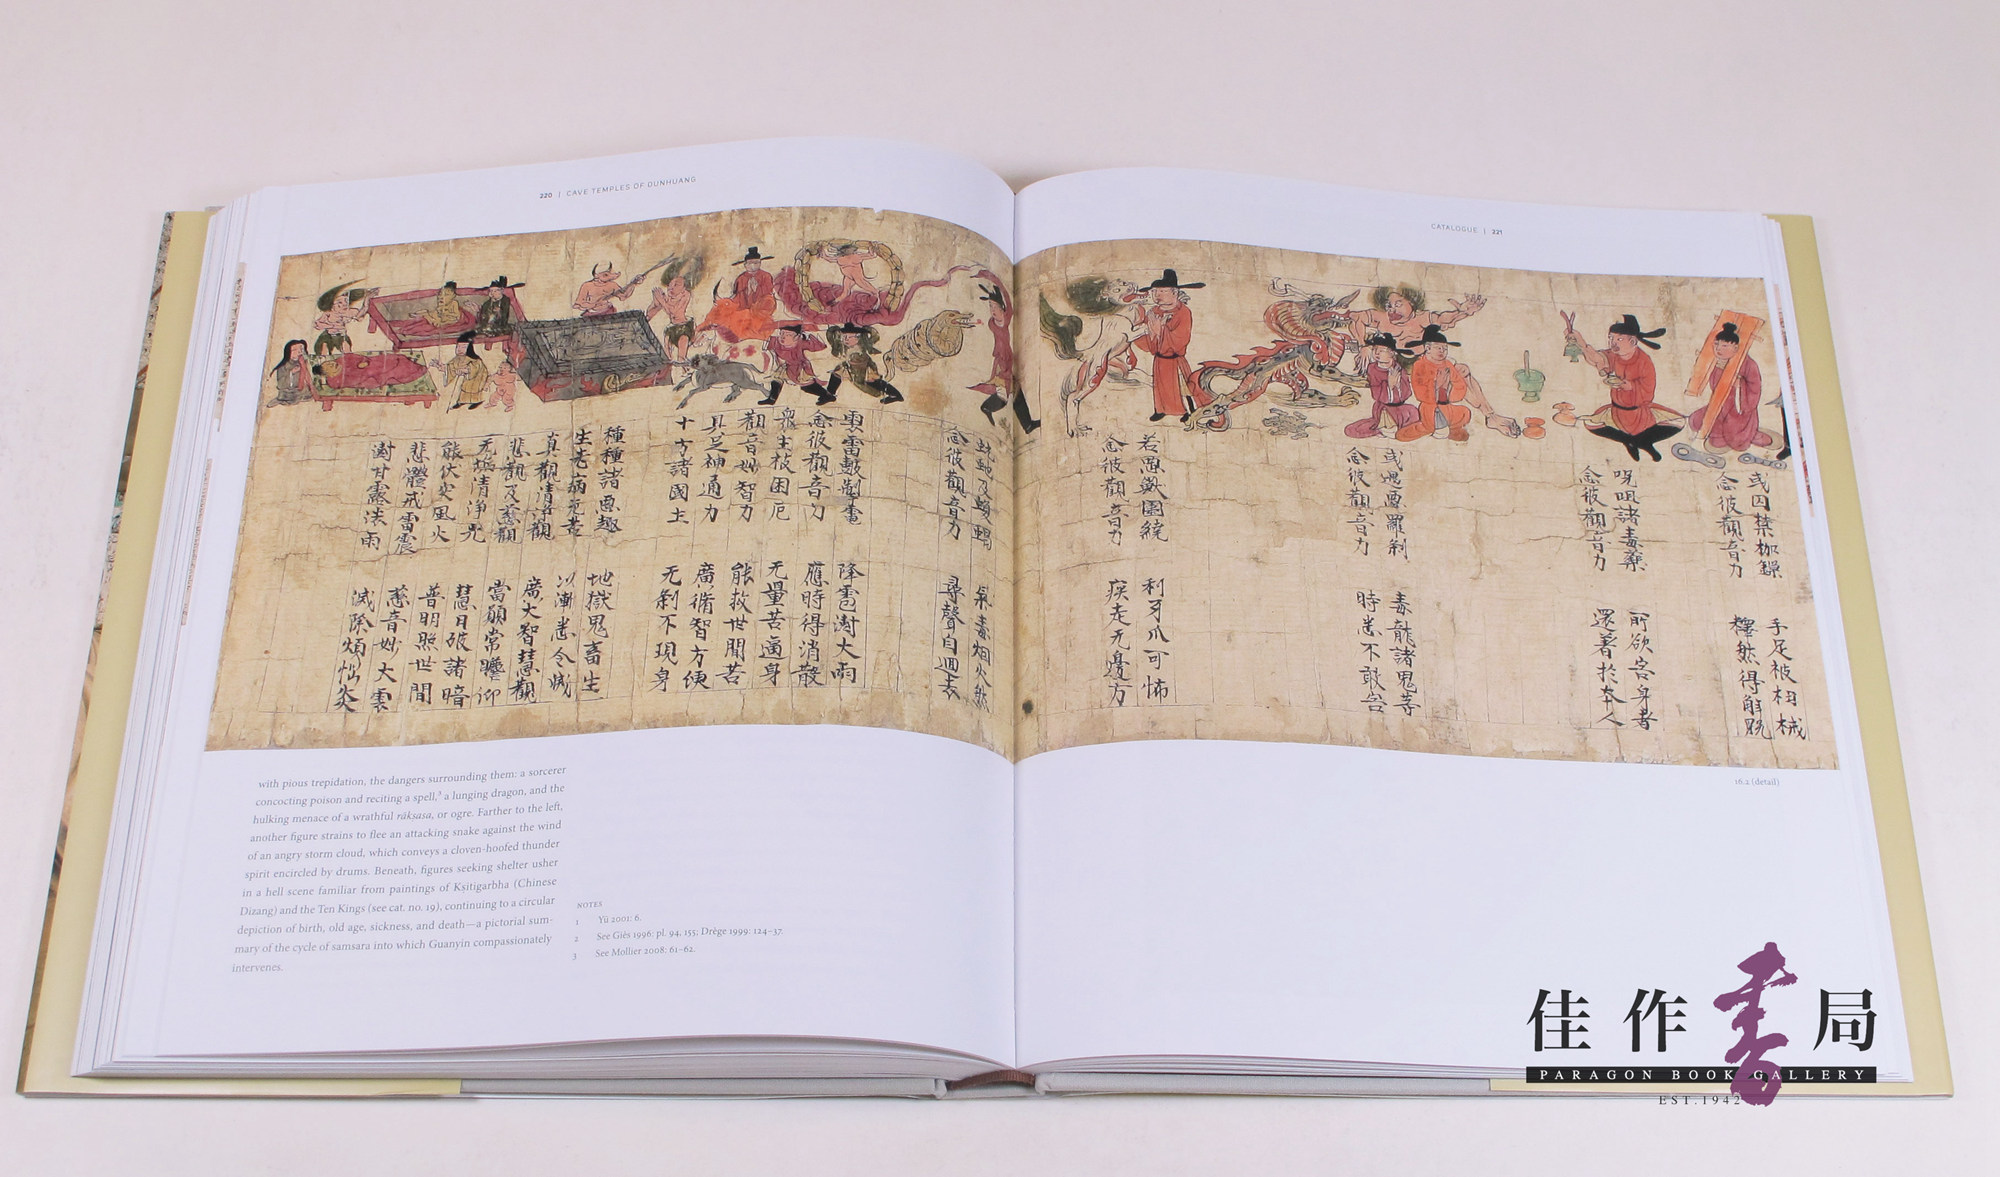 220 | CAVE TEMPLES OF DUNHUANG
CATALOGUE | 221
或囚禁枷鏁 手足被杻械
念彼觀音力 釋然得解脫
呪咀諸毒藥 所欲害身者
念彼觀音力 還著於本人
或遇惡羅刹 毒龍諸鬼等
念彼觀音力 時悉不敢害
若惡獸圍繞 利牙爪可怖
念彼觀音力 疾走无邊方
蚖虵及蝮蝎 氣毒烟火然
念彼觀音力 尋聲自迴去
雲雷皷掣電 降雹澍大雨
念彼觀音力 應時得消散
衆生被困厄 无量苦逼身
觀音妙智力 能救世間苦
具足神通力 廣脩智方便
十方諸國土 无刹不現身
種種諸惡趣 地獄鬼畜生
生老病死苦 以漸悉令滅
真觀清淨觀 廣大智慧觀
悲觀及慈觀 當願常瞻仰
无垢清淨光 慧日破諸暗
能伏灾風火 普明照世間
悲體戒雷震 慈音妙大雲
澍甘露法雨 滅除煩惱炎
16.2 (detail)
with pious trepidation, the dangers surrounding them: a sorcerer
concocting poison and reciting a spell,³ a lunging dragon, and the
hulking menace of a wrathful rākṣasa, or ogre. Farther to the left,
another figure strains to flee an attacking snake against the wind
of an angry storm cloud, which conveys a cloven-hoofed thunder
spirit encircled by drums. Beneath, figures seeking shelter usher
in a hell scene familiar from paintings of Kṣitigarbha (Chinese
Dizang) and the Ten Kings (see cat. no. 19), continuing to a circular
depiction of birth, old age, sickness, and death—a pictorial sum-
mary of the cycle of samsara into which Guanyin compassionately
intervenes.
NOTES
1 Yü 2001: 6.
2 See Giès 1996: pl. 94, 155; Drège 1999: 124–37.
3 See Mollier 2008: 61–62.
佳作書局
PARAGON BOOK GALLERY
EST.1942